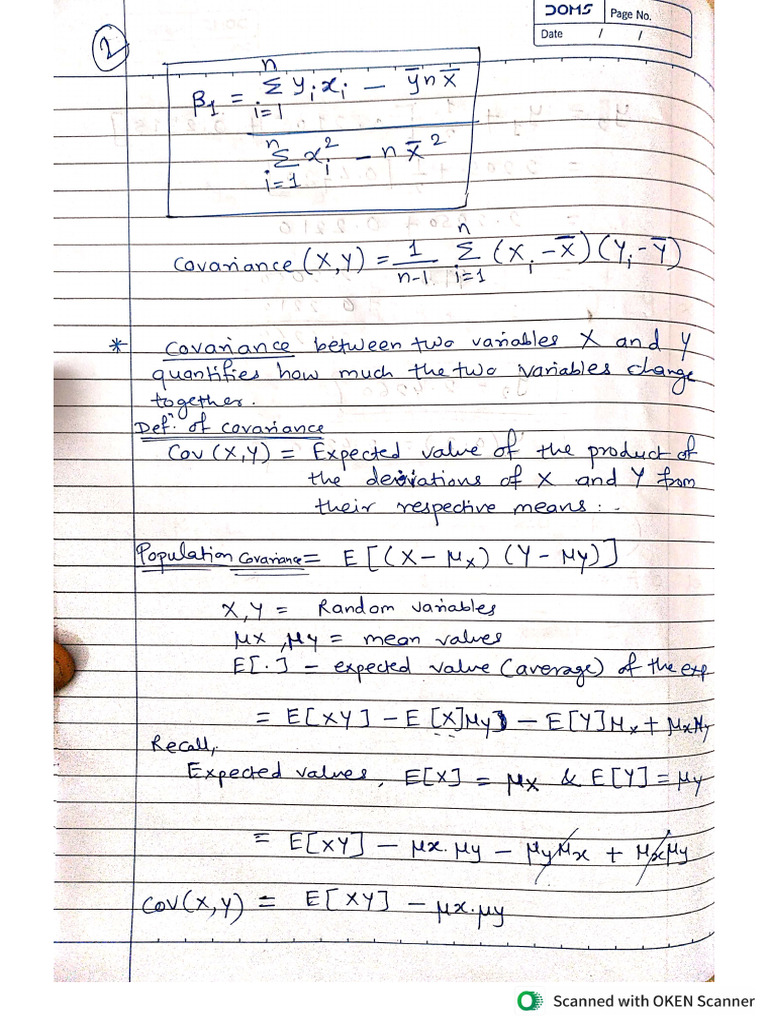 DOMS Page No.
Date / /
2
β₁ = Σⁿᵢ₌₁ yᵢxᵢ − ȳnx̄
Σⁿᵢ₌₁ xᵢ² − nx̄²
Covariance (X,Y) = 1/(n-1) Σⁿᵢ₌₁ (Xᵢ − X̄)(Yᵢ − Ȳ)
* Covariance between two variables X and Y
quantifies how much the two variables change
together.
Defⁿ. of covariance
Cov (X,Y) = Expected value of the product of
the deviations of X and Y from
their respective means : -
Population Covariance = E[(X − μx) (Y − μy)]
X,Y = Random variables
μx, μy = mean values
E[.] − expected value (average) of the exp
= E[XY] − E[X]μy − E[Y]μx + μxμy
Recall,
Expected values, E[X] = μx & E[Y] = μy
= E[XY] − μx.μy − μyμx + μxμy
Cov(X,Y) = E[XY] − μx.μy
Scanned with OKEN Scanner